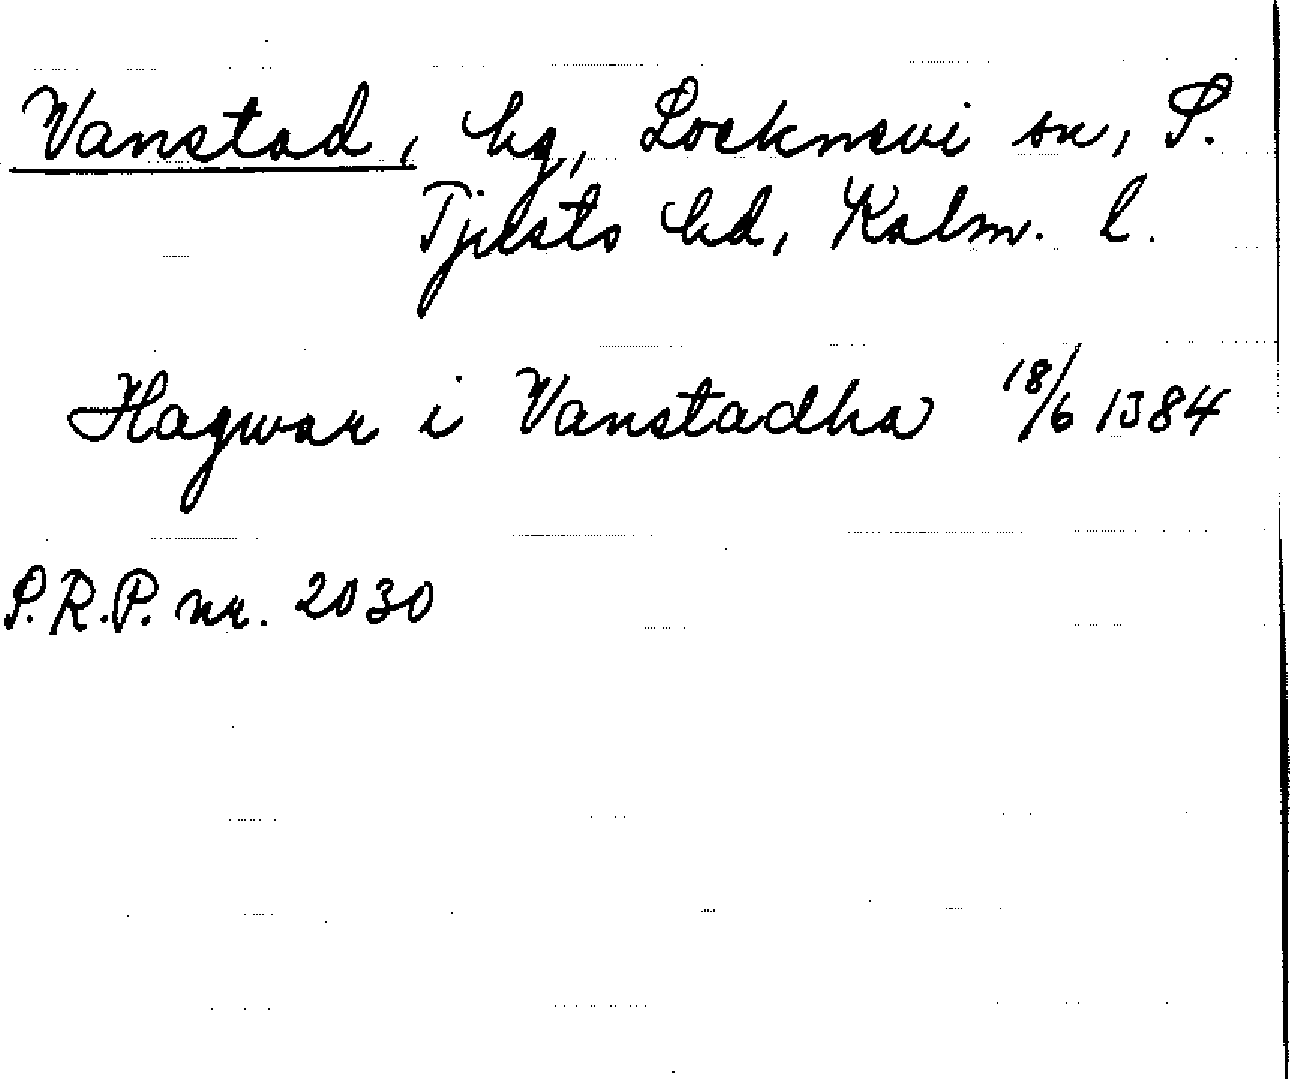 Vanstad, by, Locknevi sn, S.
Tjusts hd, Kalm. l.
Hagwar i Vanstadha 18/6 1384
S.R.P. nr. 2030